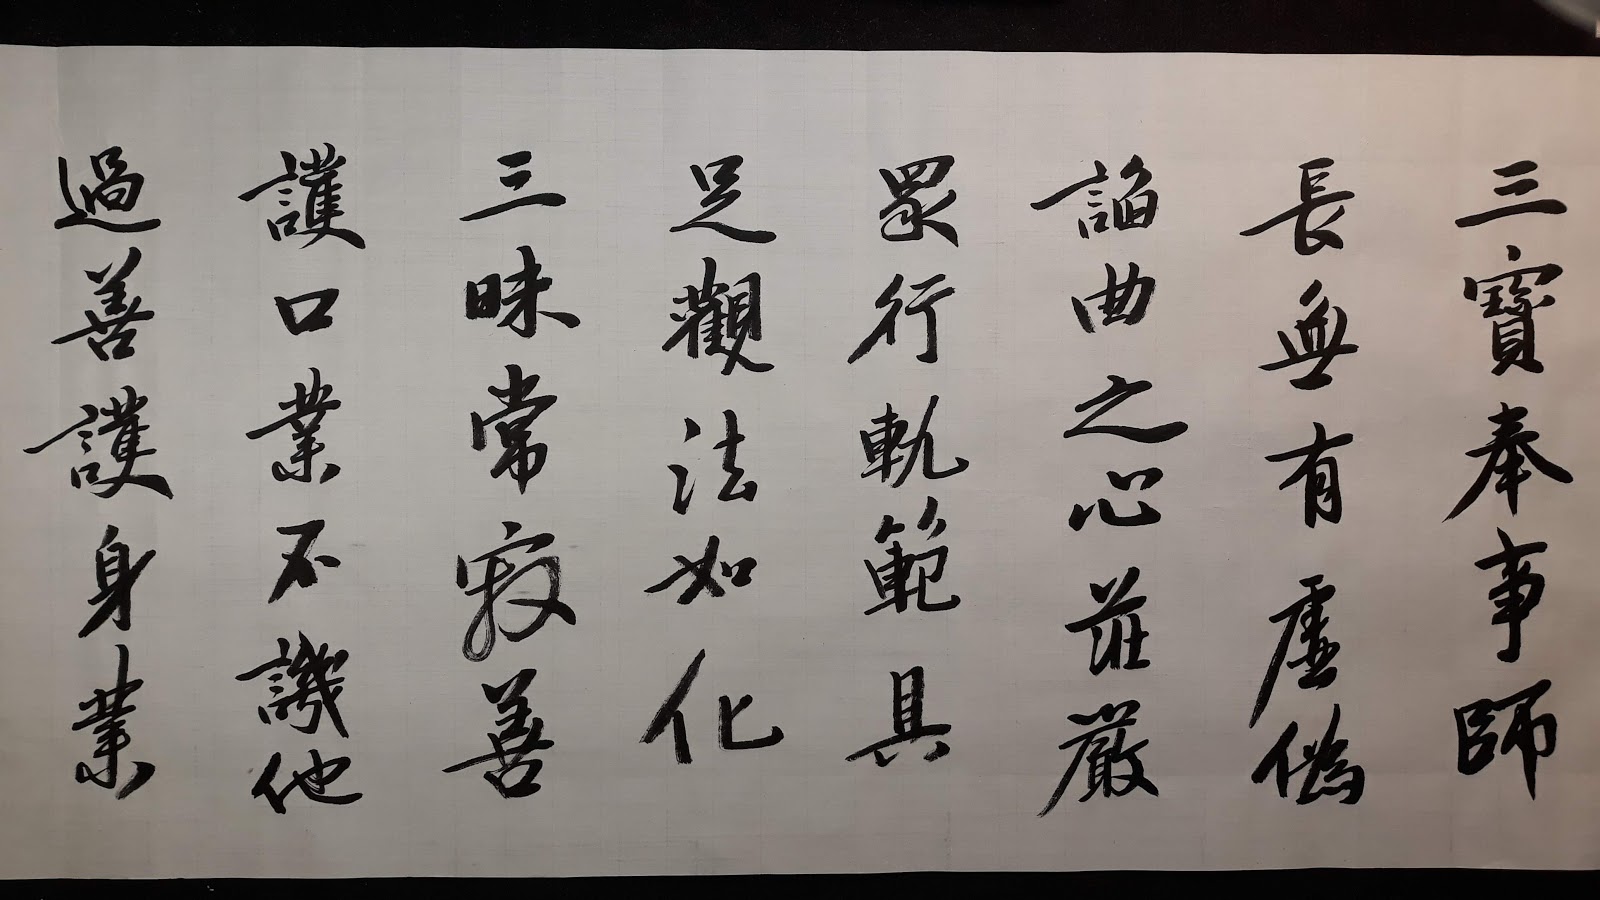 三寶奉事師
長無有虛偽
諂曲之心莊嚴
眾行軌範具
足觀法如化
三昧常寂善
護口業不譏他
過善護身業